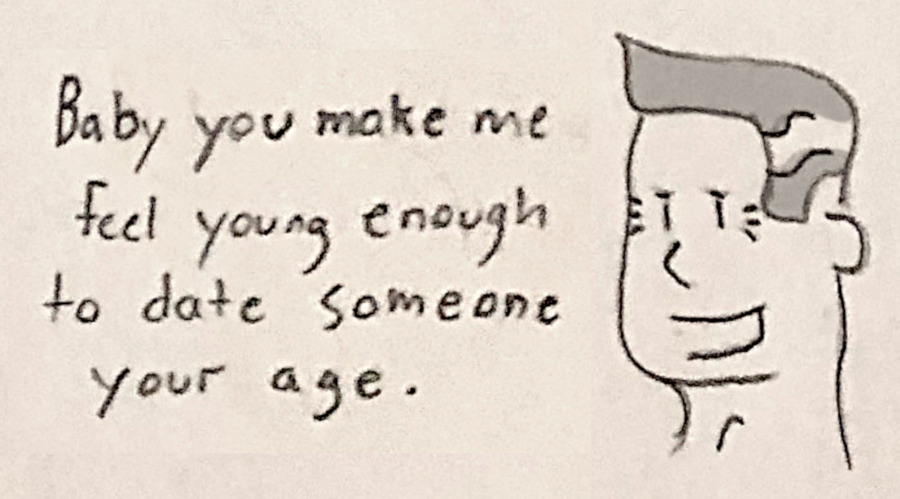 Baby you make me
feel young enough
to date someone
your age.